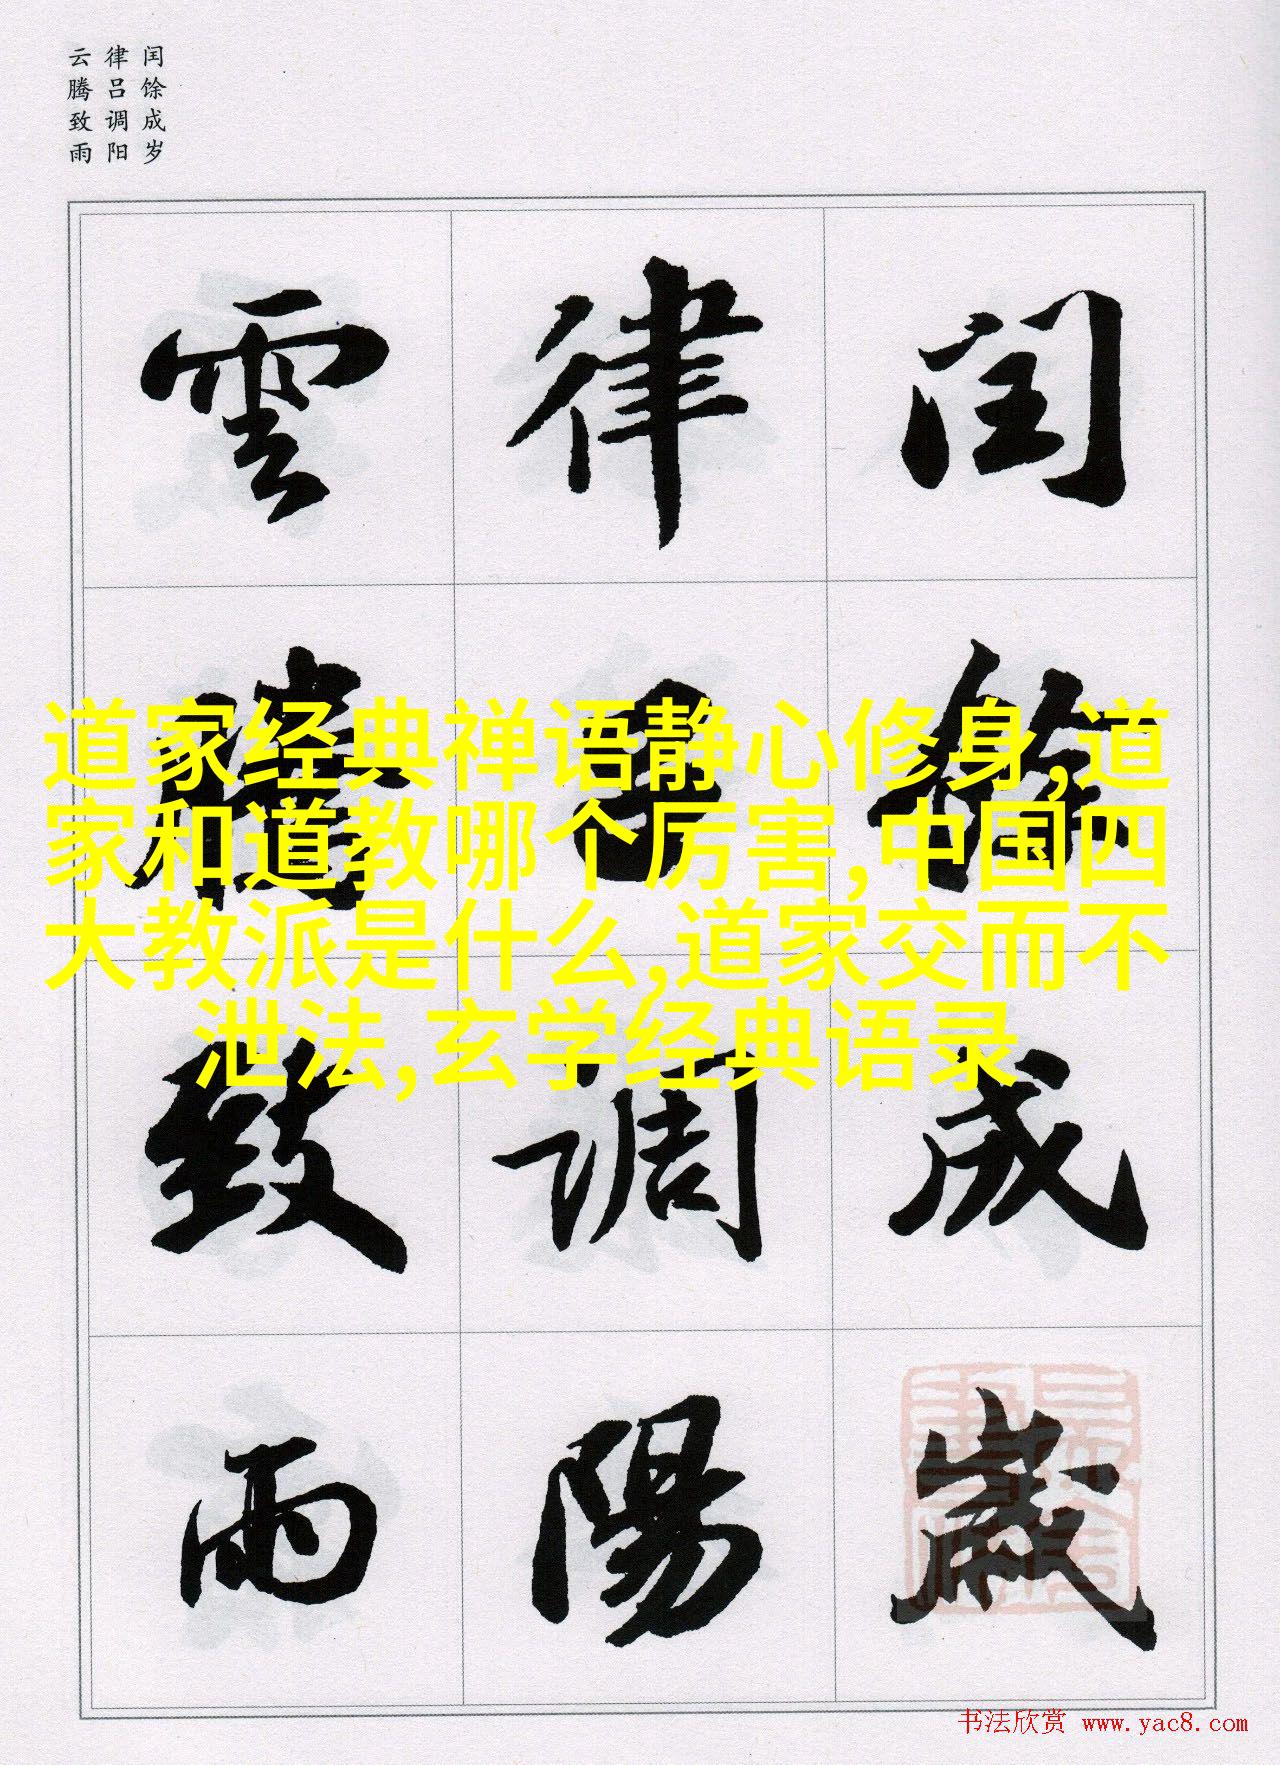 闰馀成岁
律吕调阳
云腾致雨
閏餘成歲
律吕調陽
雲騰致雨
道家经典禅语静心修身,道
家和道教哪个厉害,中国四
大教派是什么,道家交而不
泄法,玄学经典语录
书法欣赏 www.yac8.com